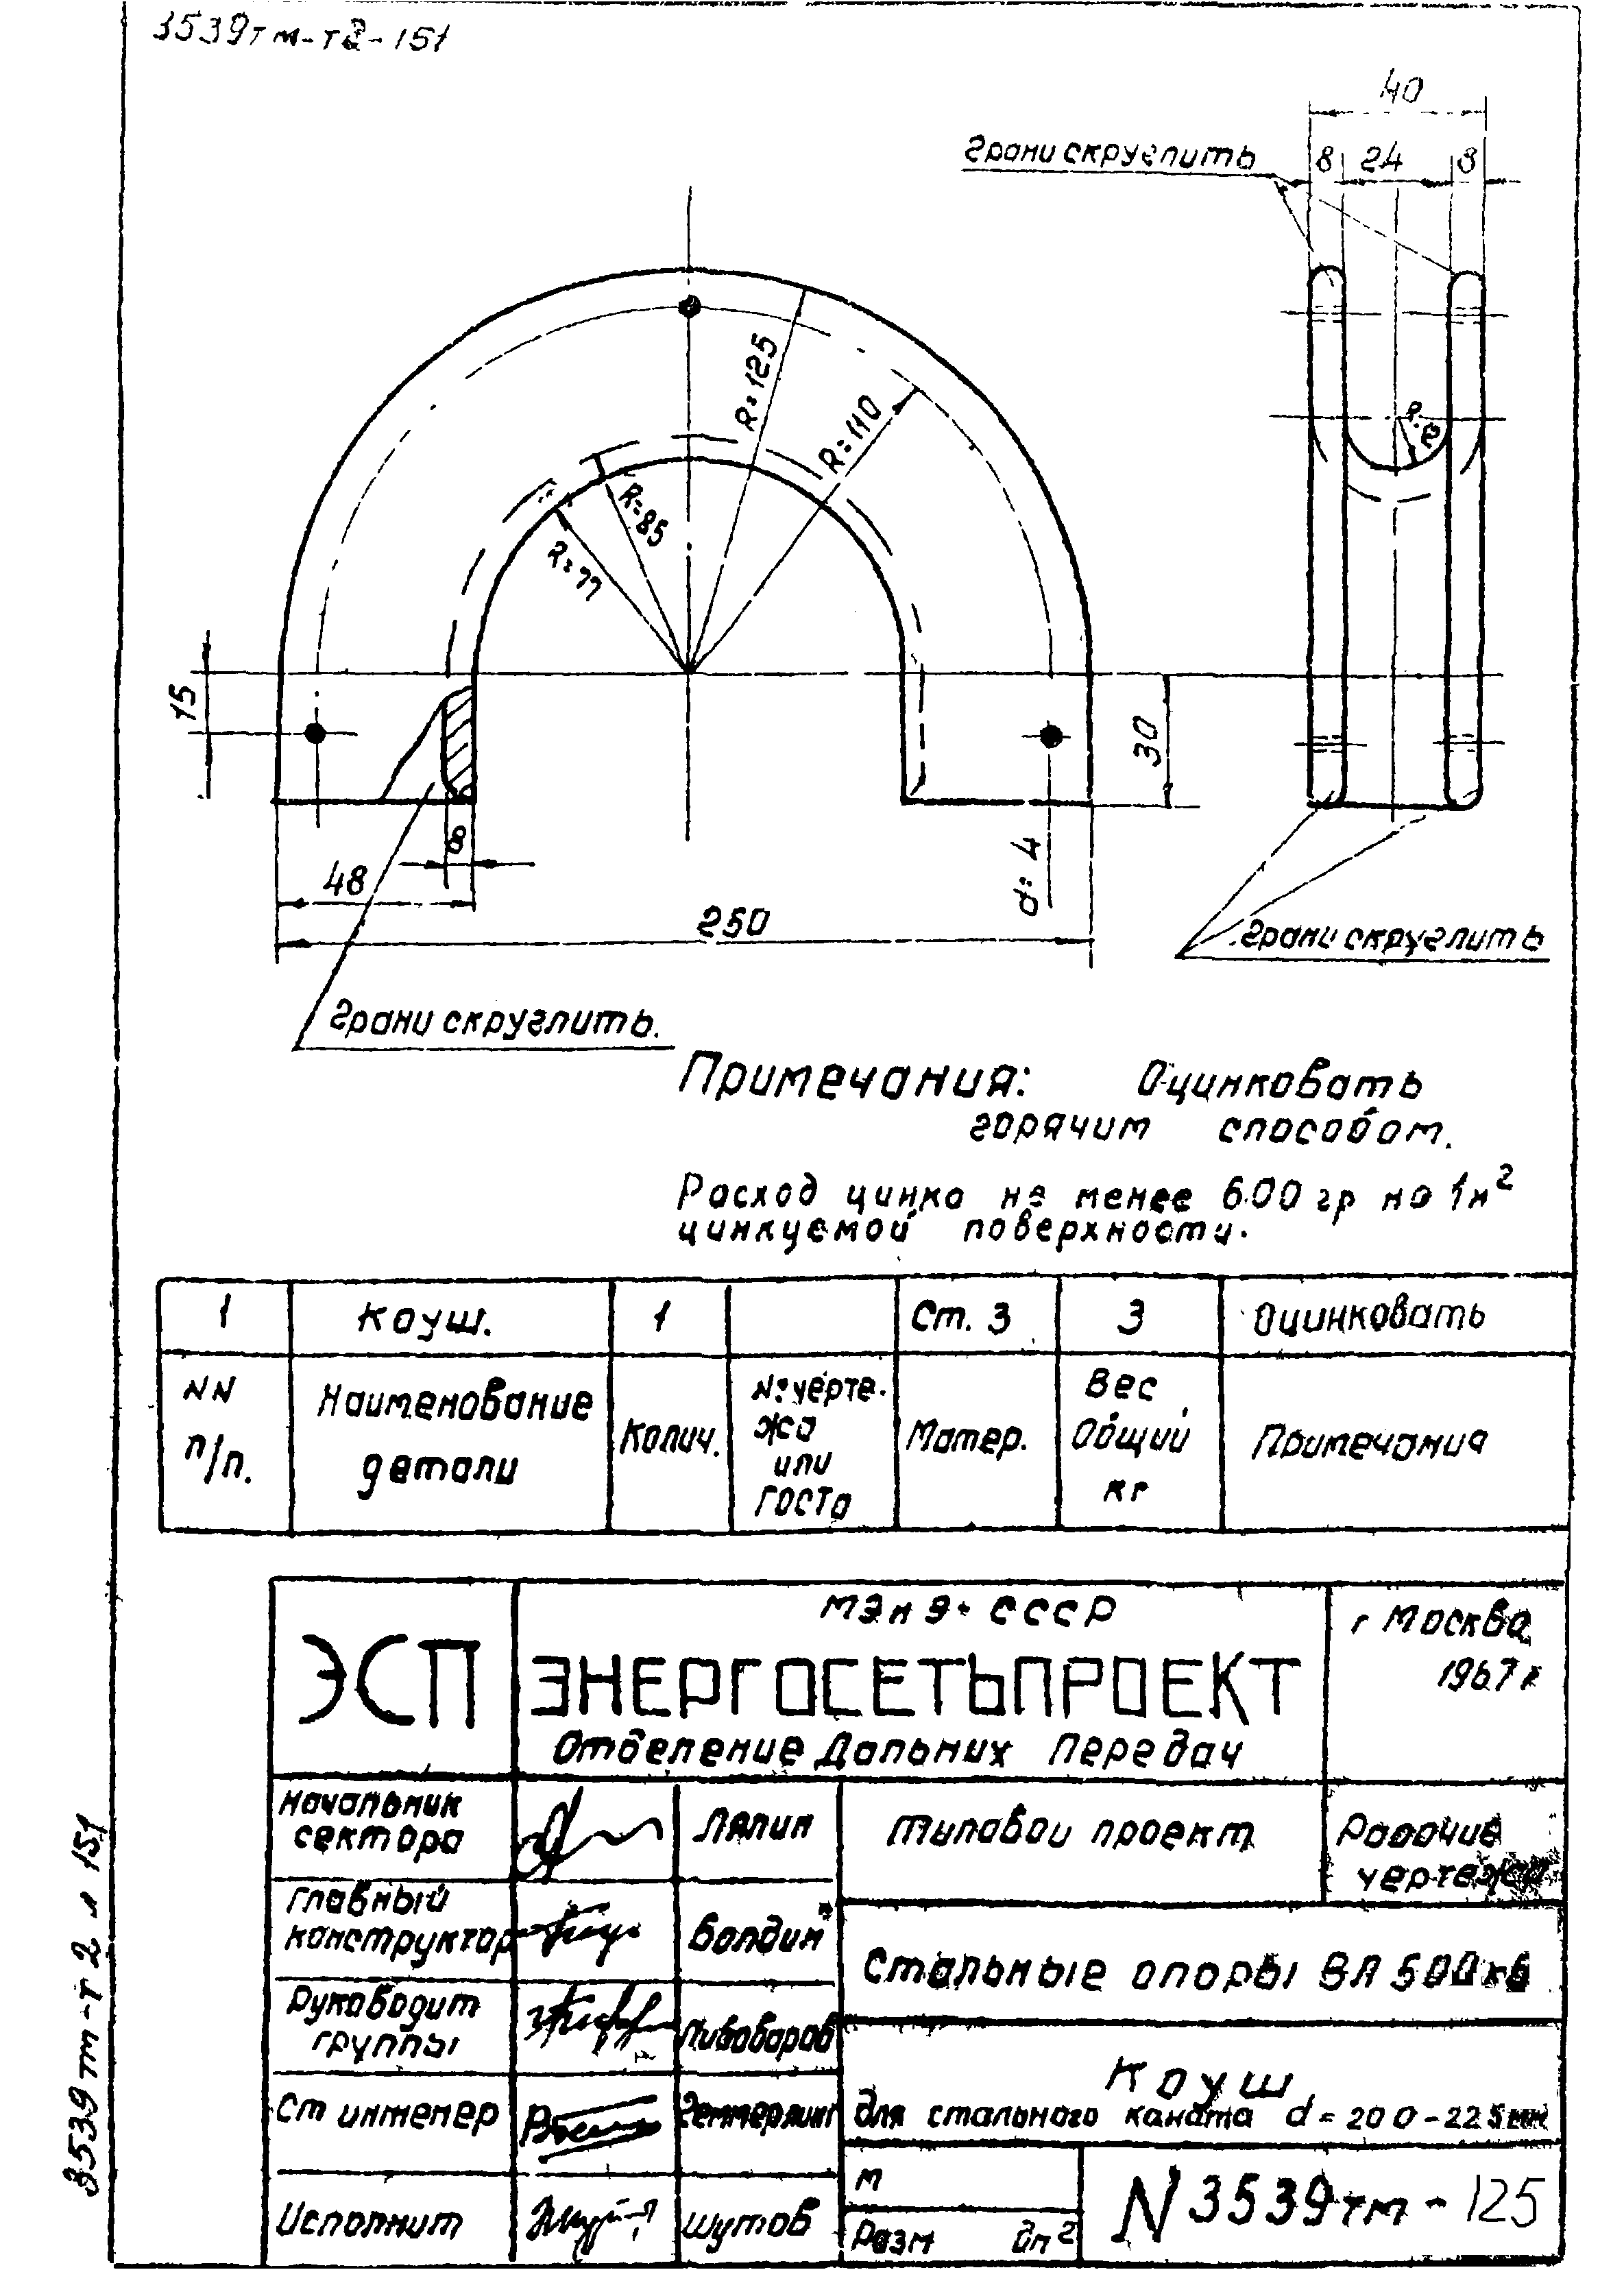 3539тм-т2-151
40
грани скруглить
8 24 8
R=125
R=110
R=85
R=77
15
30
8
48
d=4
250
грани скруглить
грани скруглить.
Примечания: Оцинковать
горячим способом.
Расход цинка не менее 600 гр на 1м²
цинкуемой поверхности.
1 Коуш. 1 Ст. 3 3 Оцинковать
NN
п/п.
Наименование
детали
Колич.
N: черте-
жа
или
ГОСТа
Матер.
Вес
Общий
кг
Примечания
ЭСП
МЭиЭ СССР
ЭНЕРГОСЕТЬПРОЕКТ
Отделение Дальних Передач
г Москва
1967 г
Начальник
сектора
Ляпин
Типовой проект
Рабочие
чертежи
Главный
конструктор
Болдин
Стальные опоры ВЛ 500кв
Руководит
группы
Пивоваров
Коуш
для стального каната d=20 0-22 5мм
Ст инженер
М
Разм дп²
N 3539тм-125
Исполнит
Шутов
3539тм-т2 л 151